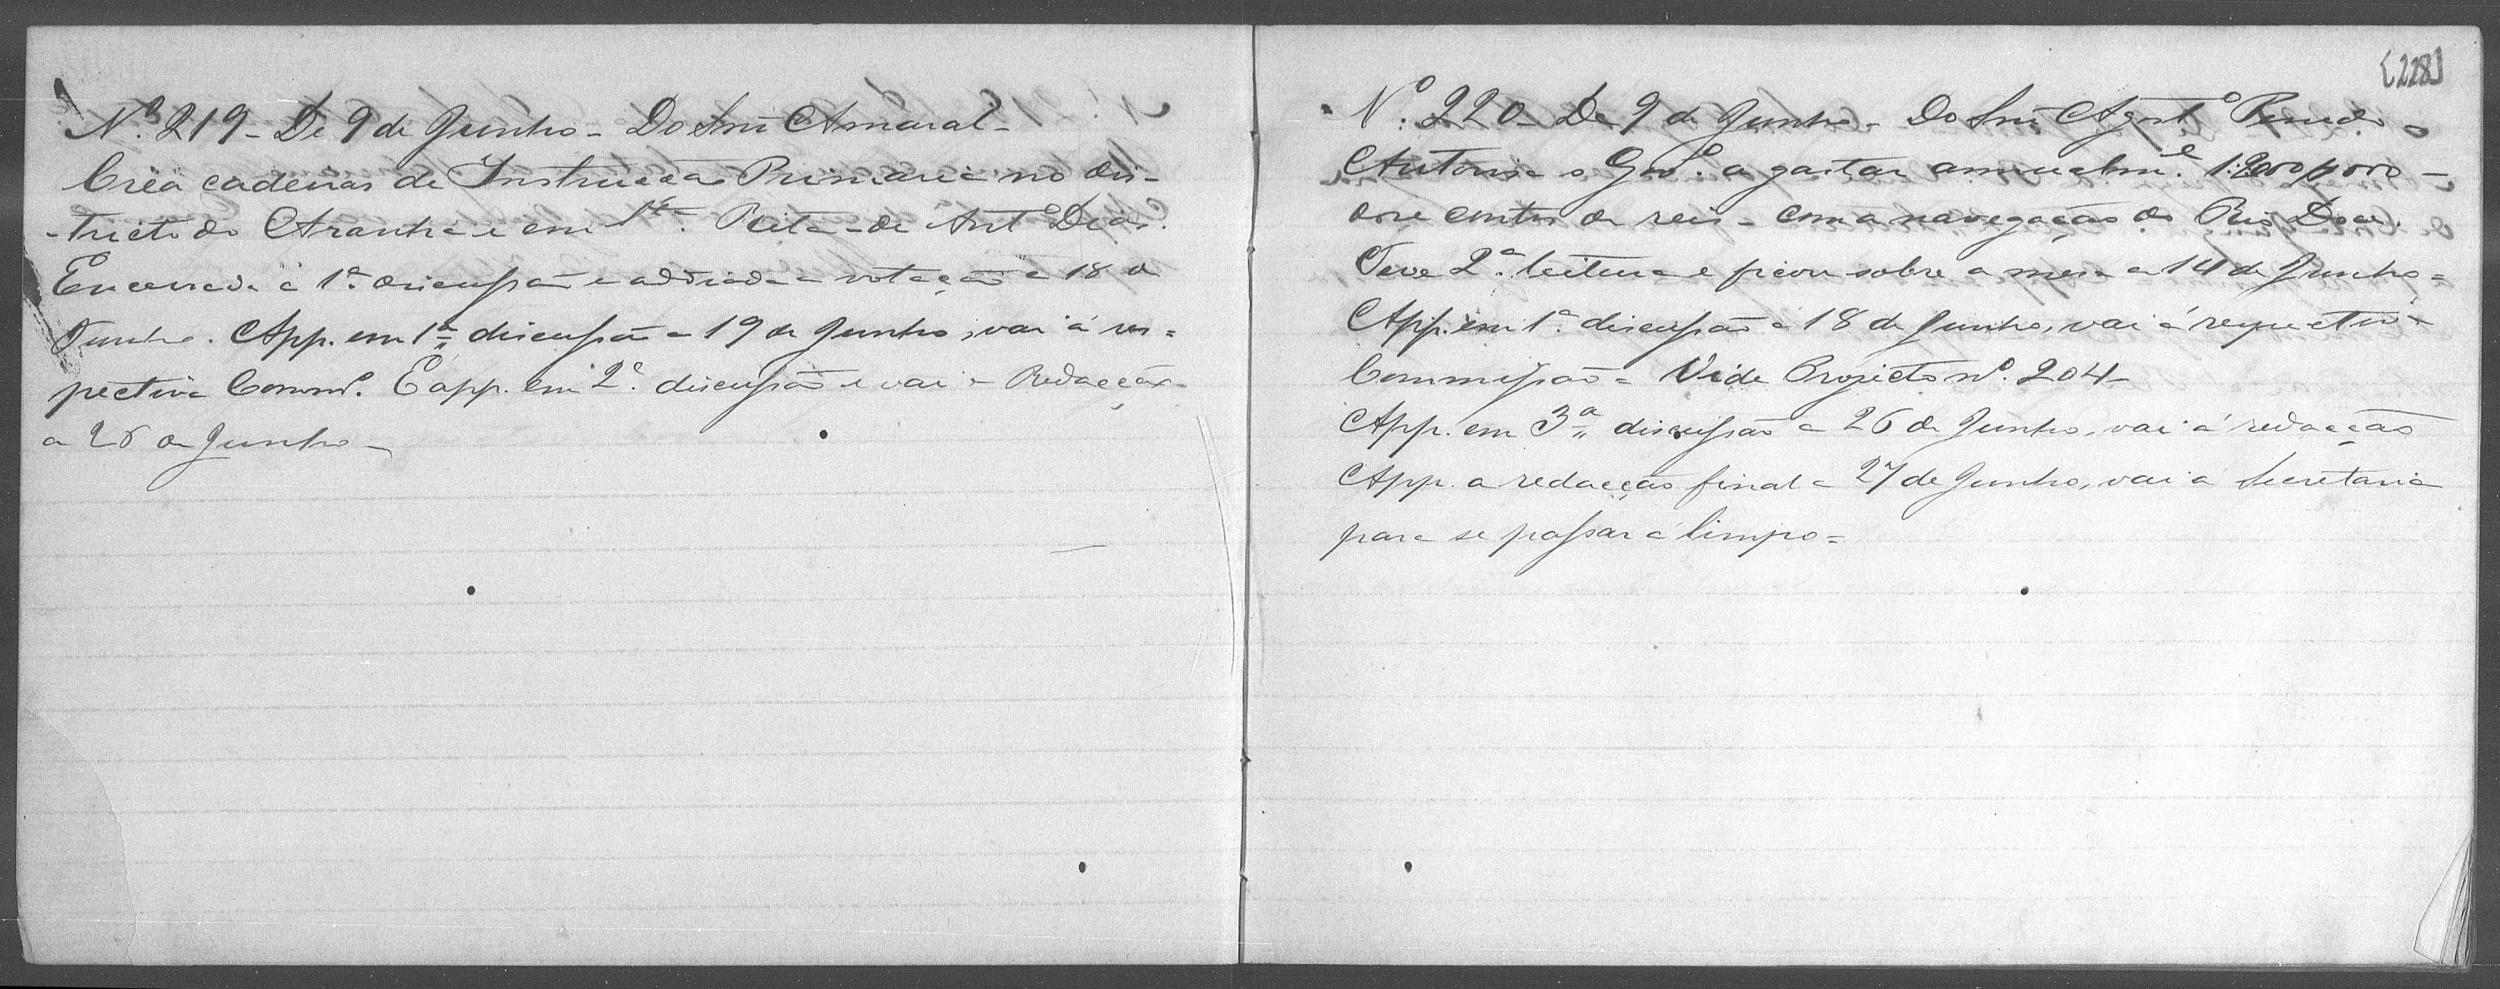 Nº. 219 - De 9 de Junho - Do Snr Amaral -
Créa cadeiras de Instrucção Primaria no dis-
-tricto do Aranha e em Sta. Rita - de Antº Dias.
Encerrada a 1ª discussão e addiada a votação a 18 de
Junho. App. em 1ª discussão a 19 de Junho, vai á res=
pectiva Comm. E app. em 2ª. discussão e vai a Redacção
a 26 de Junho -
[228]
Nº. 220 - De 9 de Junho - Do Snr Agostº Penido -
Autorisa o Gov.º a gastar annualmte.
doze contos de reis - com a navegação do Rio Doce.
Teve 2ª. leitura e ficou sobre a mesa a 14 de Junho =
App. em 1ª. discussão a 18 de Junho, vai á respectiva
Commissão = Vide Projecto nº. 204 -
App. em 3ª discussão a 26 de Junho, vai á redacção
App. a redacção final a 27 de Junho, vai á Secretaria
para se passar a limpo =